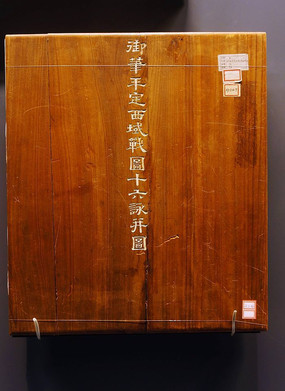 御華平定西域戰圖十六詠并圖